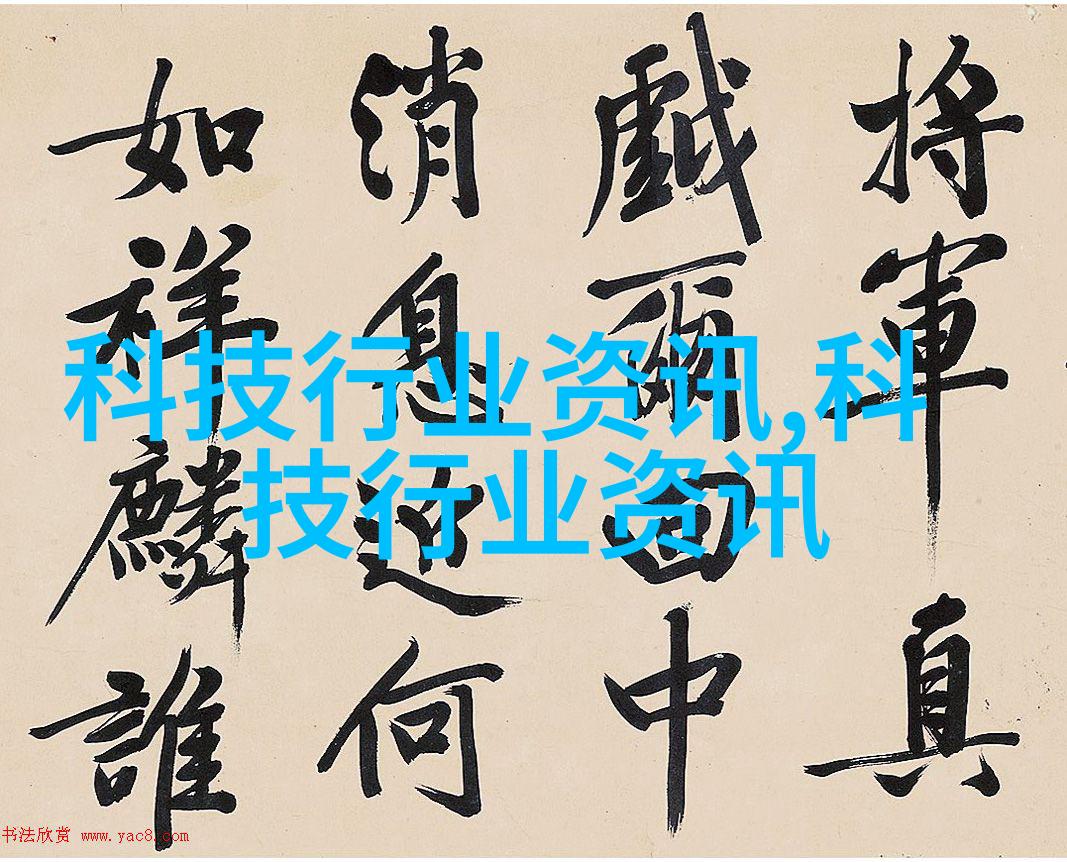 将軍真
戱爾回中
消息近何
如祥麟誰
科技行业资讯,科
技行业资讯
书法欣赏 www.yac8.com